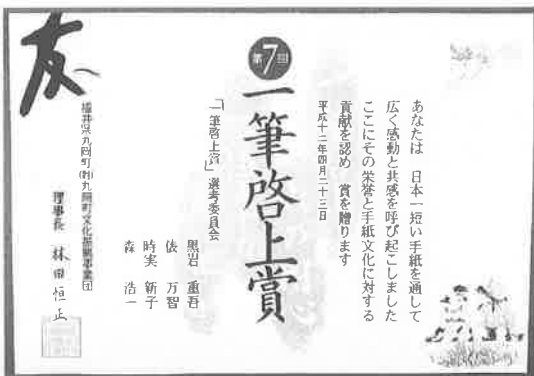 第7回
一筆啓上賞
あなたは 日本一短い手紙を通して
広く感動と共感を呼び起こしました
ここにその栄誉と手紙文化に対する
貢献を認め 賞を贈ります
平成十二年四月二十三日
「一筆啓上賞」選考委員会
黒岩 重吾
俵 万智
時実 新子
森 浩一
福井県丸岡町(財)丸岡町文化振興事業団
理事長 林田恒正
友